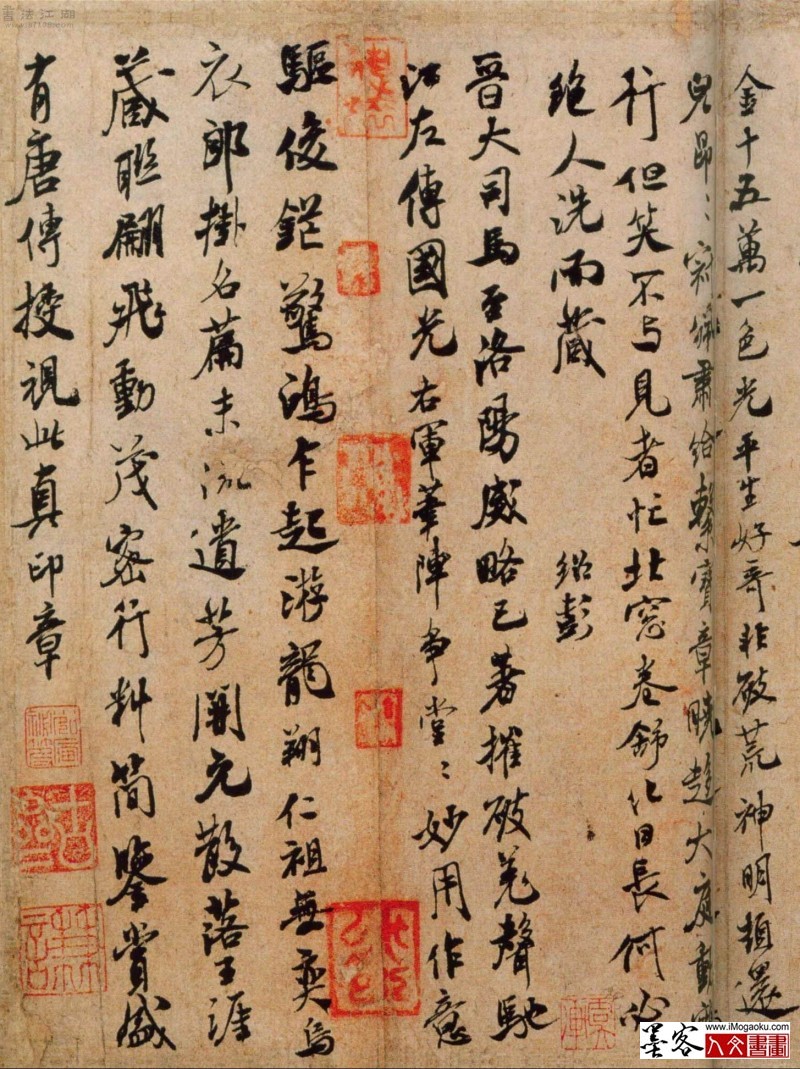 金十五萬一色光平生好奇非破荒神明頓還
兒昂〻 肅給 寶章曉趨大庭
行但笑不与見者忙北窓卷舒化日長何必
絶人洗而藏
紹彭
晋大司馬至洛陽威略已著摧破羌聲馳
江左傳國光右軍筆陣争堂〻妙用作意
驅俊 驚鴻乍起游龍翔仁祖無奕烏
衣郎掛名篇末流遺芳開元散落王涯
蔵聮翩飛動茂密行料簡鑒賞盛
有唐傳授視此真印章
書法江湖
墨客
www.iMogaoku.com
人文書畫